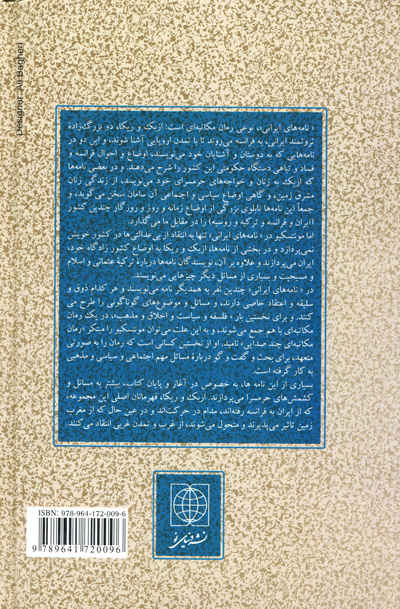 Designer: Ali Bagheri
« نامه‌های ایرانی»، نوعی رمان مکاتبه‌ای است: ازبک و ریکا، دو بزرگ‌زادهٔ
ثروتمند ایرانی، به فرانسه می‌روند تا با تمدن اروپایی آشنا شوند، و این دو در
نامه‌هایی که به دوستان و آشنایان خود می‌نویسند، اوضاع و احوال فرانسه و
فساد و تباهی دستگاه حکومتی این کشور را شرح می‌دهند. و در بعضی نامه‌ها
که ازبک به زنان و خواجه‌های حرمسرای خود می‌نویسد، از زندگی زنان
مشرق زمین، و گاهی اوضاع سیاسی و اجتماعی آن سامان سخن می‌گوید، و
جمعاً این نامه‌ها تابلوی بزرگی از اوضاع زمانه و روز و روزگار چندایی کشور
(ایران و فرانسه و ترکیه و روسیه) را در مقابل ما می‌گذارد.
اما مونتسکیو در «نامه‌های ایرانی» تنها به انتقاد از بی‌عدالتی‌ها در کشور خویش
نمی‌پردازد و در بخشی از نامه‌ها، ازبک و ریکا به اوضاع کشور زادگاه خود،
ایران می‌پردازند و علاوه بر آن، نویسندگان نامه‌ها دربارهٔ ترکیهٔ عثمانی و اسلام
و مسیحیت و بسیاری از مسائل دیگر چیزهایی می‌نویسند.
در « نامه‌های ایرانی» چندین نفر به همدیگر نامه می‌نویسند و هر کدام ذوق و
سلیقه و اعتقاد خاصی دارند، و مسائل و موضوع‌های گوناگونی را طرح می
کنند. و برای نخستین بار، فلسفه و سیاست و اخلاق و مذهب، در یک رمان
مکاتبه‌ای با هم جمع می‌شوند، و به این علت می‌توان مونتسکیو را مبتکر «رمان
مکاتبه‌ای چند صدایی» نامید. او از نخستین کسانی است که رمان را به صورتی
متعهد، برای بحث و گفت و گو دربارهٔ مسائل مهم اجتماعی و سیاسی و مذهبی
به کار گرفته است.
بسیاری از این نامه ها، به خصوص در آغاز و پایان کتاب، بیشتر به مسائل و
کشمش‌های حرمسرا می‌پردازند. ازبک و ریکا، قهرمانان اصلی این مجموعه،
که از ایران به فرانسه رفته‌اند، مدام در حرکت‌اند و در عین حال که از مغرب
زمین تاثیر می‌پذیرند و متحول می‌شوند، از غرب و تمدن غربی انتقاد می‌کنند.
نشر دنیای نو
ISBN: 978-964-172-009-6
9 789641 720096